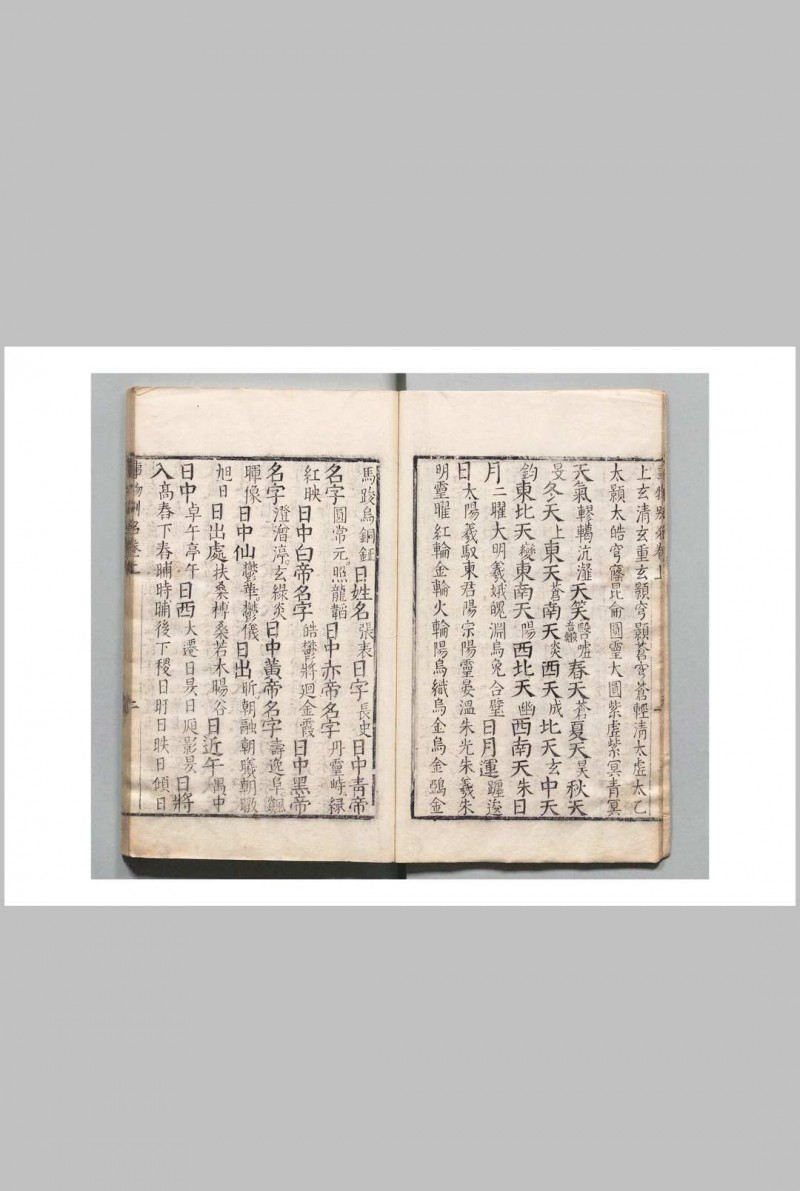 上玄清玄重玄顥穹顥蒼穹蒼輕清太虛太乙
太顥太皓穹窿昆侖圓靈大圓紫虛紫冥青冥
天氣轇轕沆瀣天笑 春天蒼夏天昊秋天
旻冬天上東天蒼南天炎西天成北天玄中天
鈞東北天變東南天陽西北天幽西南天朱日
月二曜大明羲娥魄淵烏兔合璧日月運躔逡
日太陽羲馭東君陽宗陽靈晏溫朱光朱羲朱
明靈曜紅輪金輪火輪陽烏織烏金烏金鵶金
馬踆烏銅鉦日姓名張表日字長史日中青帝
名字圓常元照龍韜日中赤帝名字丹靈峙綠
紅映日中白帝名字皓鬱將廻金霞日中黑帝
名字澄潧渟玄綠炎日中黃帝名字壽逸阜飈
暉像日中仙鬱華鬱儀日出昕朝融朝曦朝暾
旭日日出處扶桑榑桑若木暘谷日近午禺中
日中卓午亭午日西大遷日昃日 影昃日將
入高舂下舂晡時晡後下稷日盱日昳日傾日